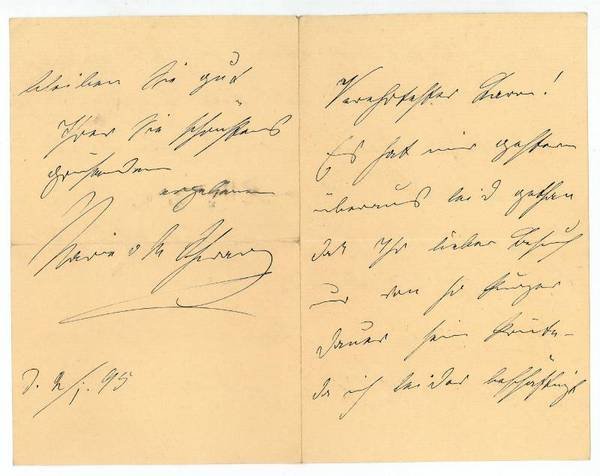 Verehrtester Baron!
Es hat mir gestern
überaus leid gethan
daß Ihr lieber Besuch
nur von so kurzer
Dauer sein konnte –
da ich leider beschäftigt
bleiben Sie gut
Ihrer Sie schönstens
grüßenden
ergebenen
Marie
d. 2/1. 95